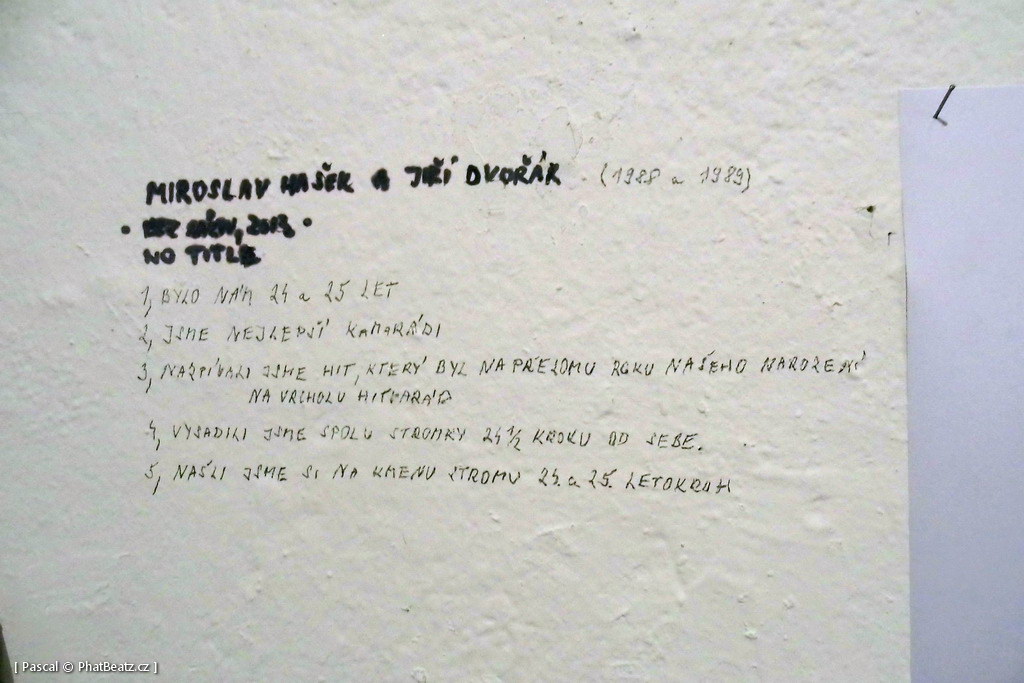 MIROSLAV HAŠEK A JIŘÍ DVOŘÁK (1988 a 1989)
• BEZ NÁZVU, 2013 •
NO TITLE
1, BYLO NÁM 24 a 25 LET
2, JSME NEJLEPŠÍ KAMARÁDI
3, NAZPÍVALI JSME HIT, KTERÝ BYL NA PŘELOMU ROKU NAŠEHO NAROZENÍ
NA VRCHOLU HITPARÁD
4, VYSADILI JSME SPOLU STROMKY 24 1/2 KROKU OD SEBE.
5, NAŠLI JSME SI NA KMENU STROMU 24. a 25. LETOKRUH
[ Pascal © PhatBeatz.cz ]